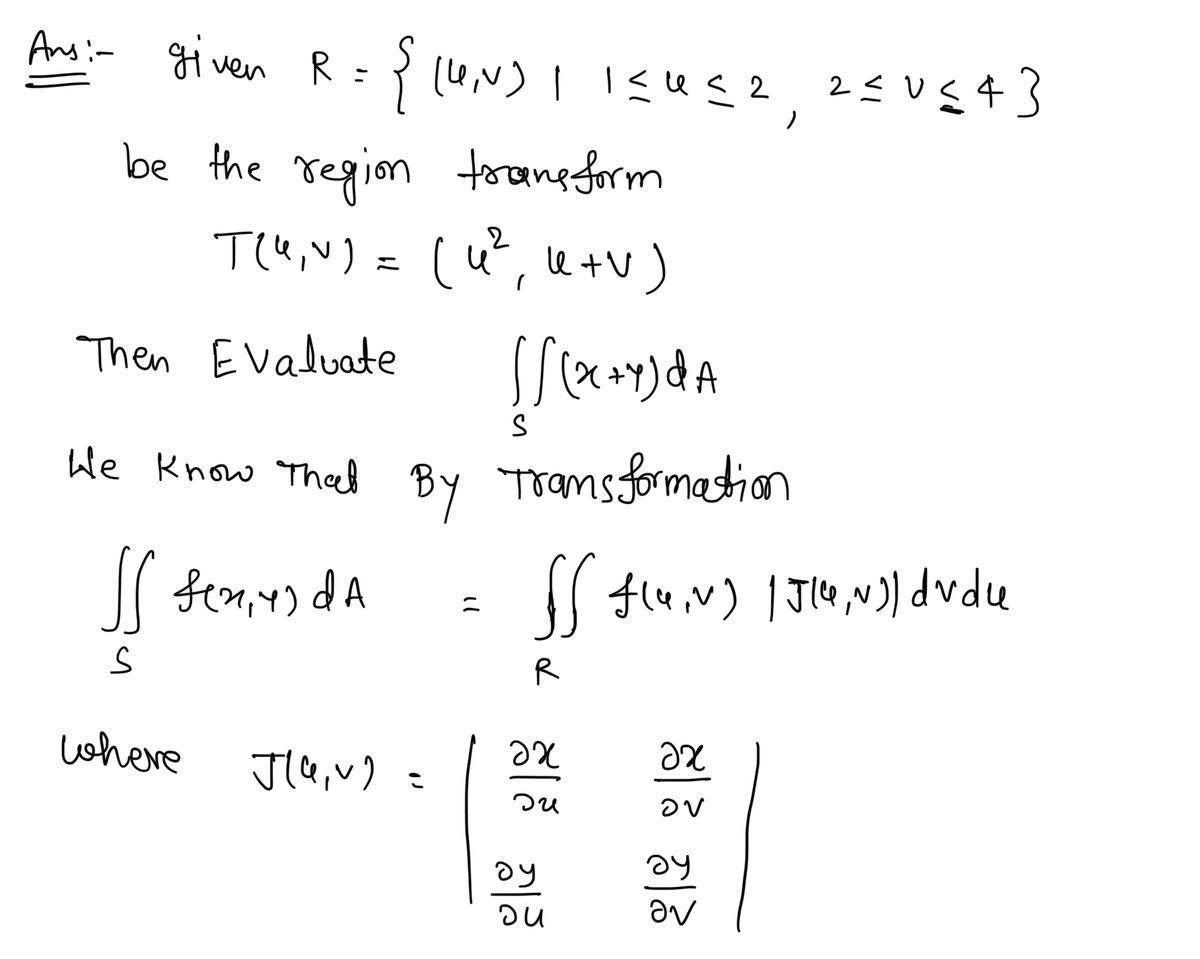 Ans:- given R = { (u,v) | 1 ≤ u ≤ 2 , 2 ≤ v ≤ 4 }
be the region transform
T(u,v) = ( u², u+v )
Then Evaluate ∬_S (x+y) dA
We Know That By Transformation
∬_S f(x,y) dA = ∬_R f(u,v) |J(u,v)| dv du
where J(u,v) = | ∂x/∂u ∂x/∂v |
| ∂y/∂u ∂y/∂v |